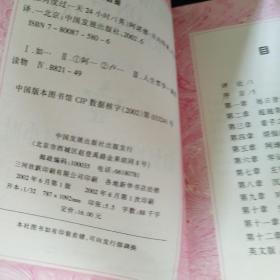 何度过一天24小时/(英)阿诺德·
译.—北京:中国发展出版社,2002.6
ISBN 7-80087-580-6
Ⅰ.如… Ⅱ.①阿… ②卢… Ⅲ.人生哲学—
读物 Ⅳ.B821-49
中国版本图书馆 CIP 数据核字(2002)第
中国发展出版社出版发行
(北京市西城区赵登禹路金果胡同8号)
邮政编码:100035 电话:66180781
三河欣欣印刷有限公司印刷 各地新华书店经销
2002年6月第1版 2002年6月第1次印刷
开本:1/32 787×1092mm 印张:5.5 字数:88千字
定价:16.00元
本社图书如有印装差错,可向发行部调换
目
译 论
第一章
第二章
第三章
第四章
第五章
第六章
第七章
第八章
第九章
第十章
第十一章
第十二章
英文版